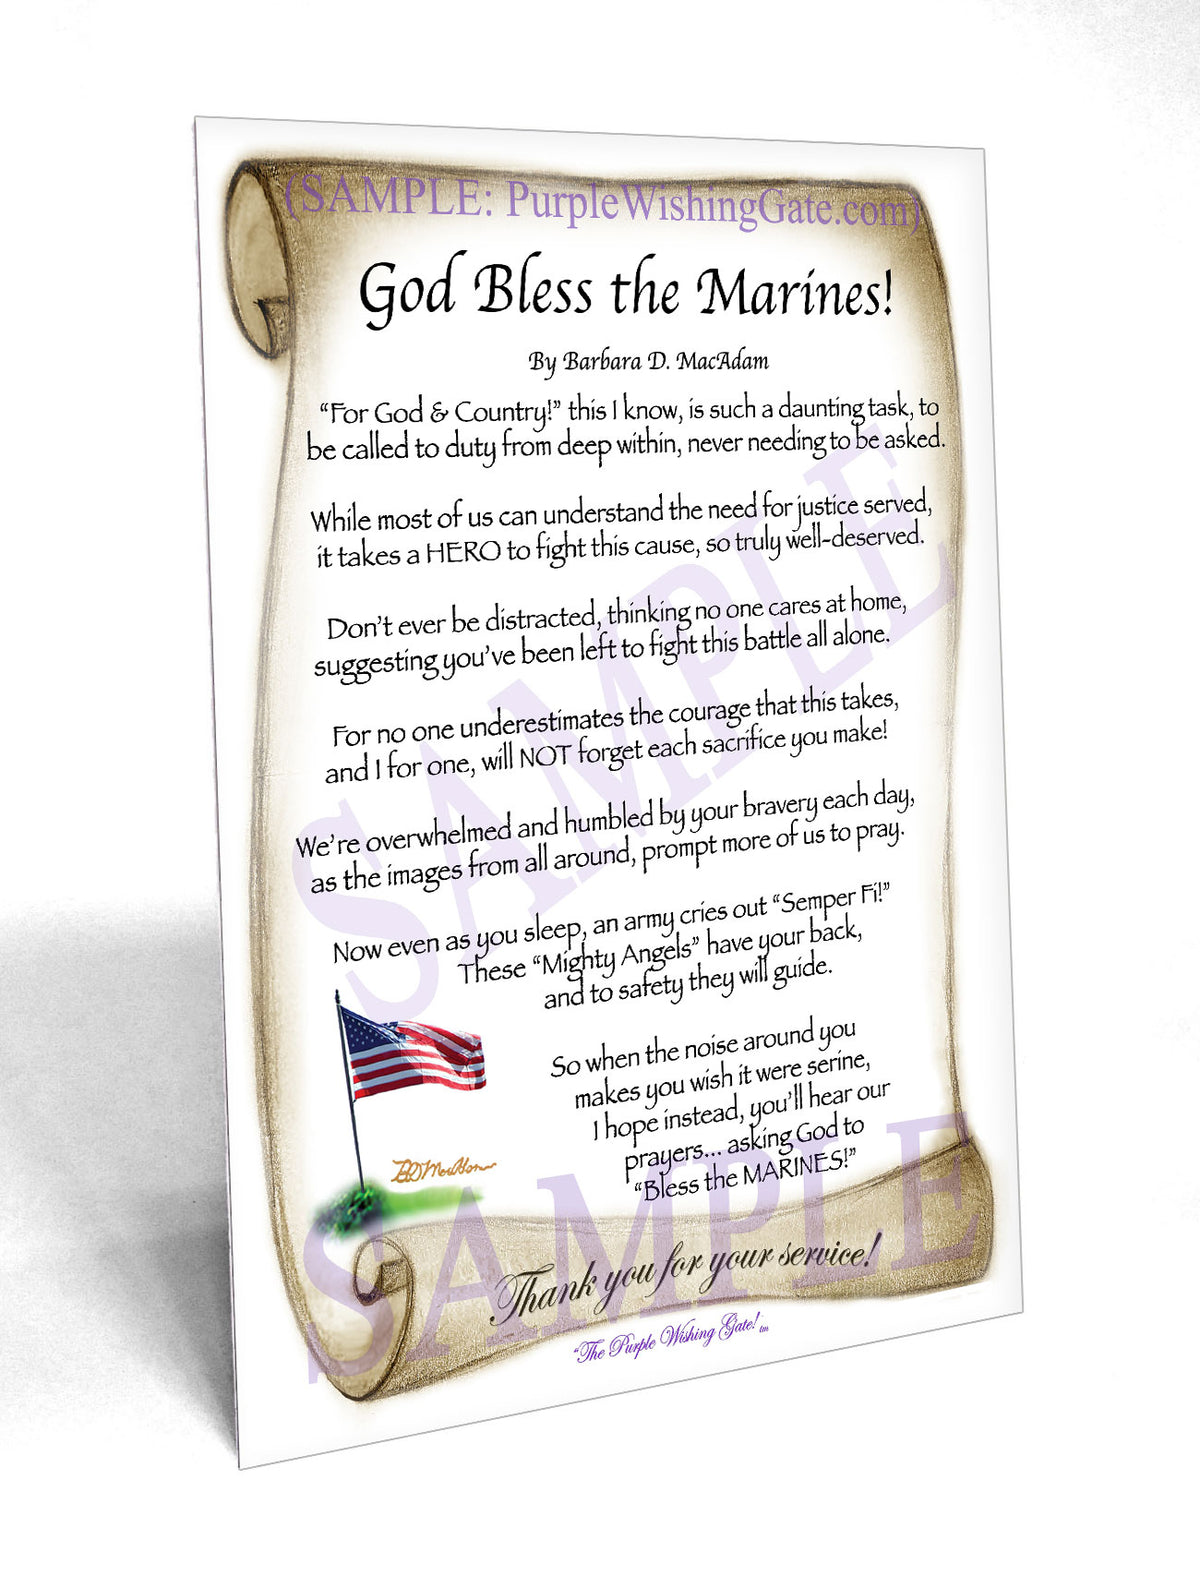 (SAMPLE: PurpleWishingGate.com)
God Bless the Marines!
By Barbara D. MacAdam
“For God & Country!” this I know, is such a daunting task, to
be called to duty from deep within, never needing to be asked.
While most of us can understand the need for justice served,
it takes a HERO to fight this cause, so truly well-deserved.
Don’t ever be distracted, thinking no one cares at home,
suggesting you’ve been left to fight this battle all alone.
For no one underestimates the courage that this takes,
and I for one, will NOT forget each sacrifice you make!
We’re overwhelmed and humbled by your bravery each day,
as the images from all around, prompt more of us to pray.
Now even as you sleep, an army cries out “Semper Fi!”
These “Mighty Angels” have your back,
and to safety they will guide.
So when the noise around you
makes you wish it were serine,
I hope instead, you’ll hear our
prayers... asking God to
“Bless the MARINES!”
Thank you for your service!
“The Purple Wishing Gate! tm
SAMPLE
SAMPLE